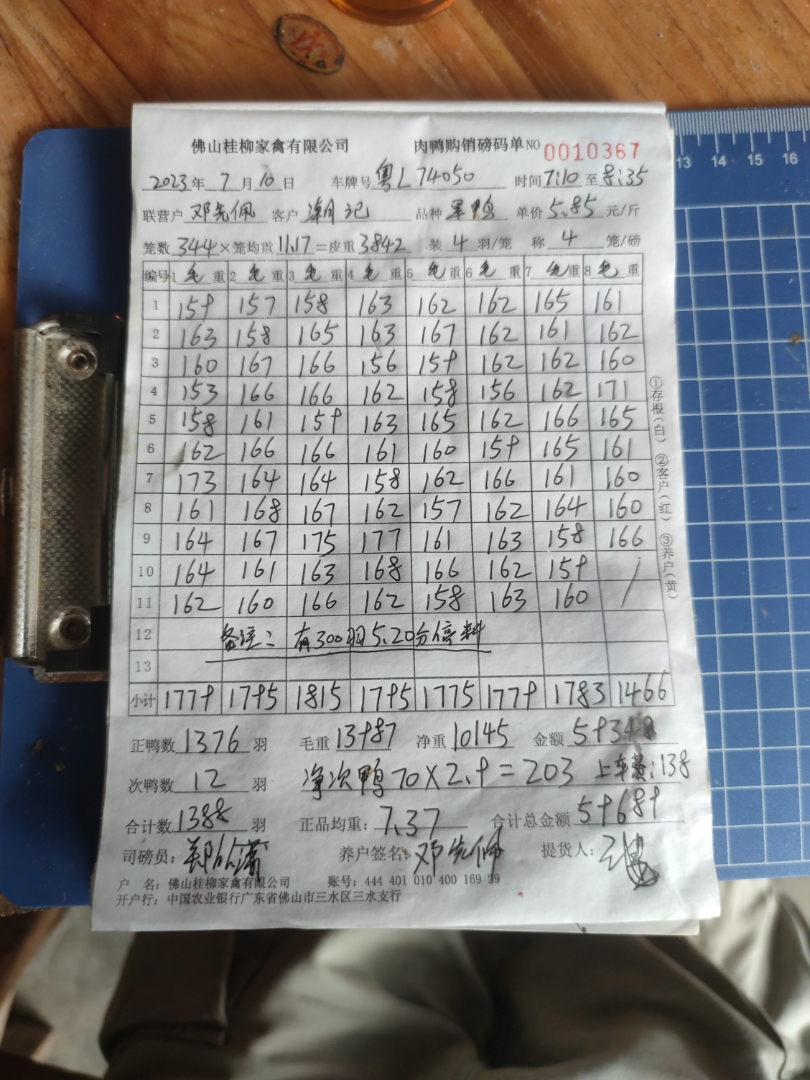 佛山桂柳家禽有限公司 肉鸭购销磅码单 NO 0010367
2023年 7月 10日 车牌号 粤L74050 时间 7:10 至 8:35
联营户 邓先佩 客户 潮记 品种 黑鸭 单价 5.85 元/斤
笼数 344 × 笼均重 11.17 = 皮重 3842 装 4 羽/笼 称 4 笼/磅
编号 1 毛 重 2 毛 重 3 毛 重 4 毛 重 5 毛 重 6 毛 重 7 毛 重 8 毛 重
1 159 157 158 163 162 162 165 161
2 163 158 165 163 167 162 161 162
3 160 167 166 156 159 162 162 160
4 153 166 166 162 158 156 162 171
5 158 161 159 163 165 162 166 165
6 162 166 166 161 160 159 165 161
7 173 164 164 158 162 166 161 160
8 161 168 167 162 157 162 164 160
9 164 167 175 177 161 163 158 166
10 164 161 163 168 166 162 159 /
11 162 160 166 162 158 163 160 /
12 备注: 有300羽5.20分停料
13
小计 1779 1795 1815 1795 1775 1779 1783 1466
正鸭数 1376 羽 毛重 13987 净重 10145 金额 59348
次鸭数 12 羽 净次鸭 70×2.9=203 上车费:138
合计数 1388 羽 正品均重: 7.37 合计总金额 59689
司磅员: 养户签名: 邓先佩 提货人:
户 名: 佛山桂柳家禽有限公司 账号: 444 401 010 400 169 29
开户行: 中国农业银行广东省佛山市三水区三水支行
①存根(白) ②客户(红) ③养户(黄)
13 14 15 16